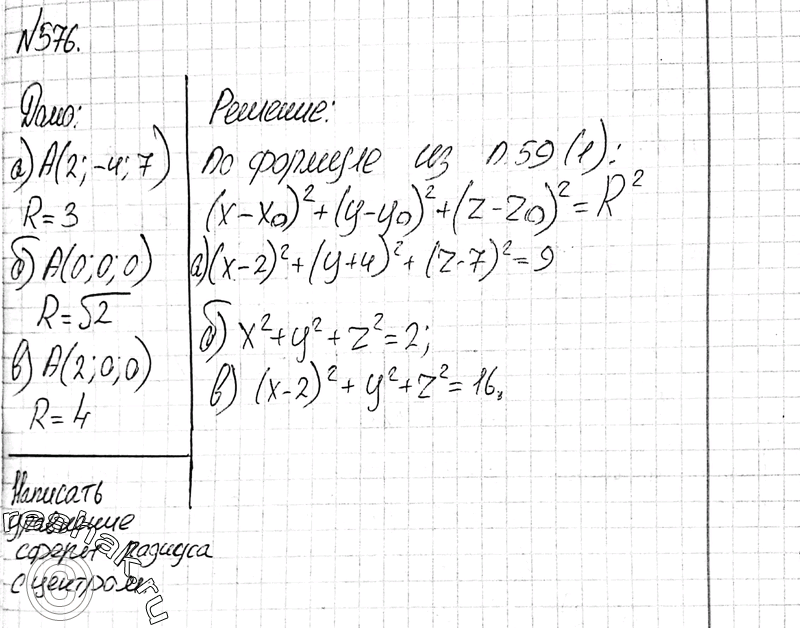 №576.
Дано:
а) A(2; -4; 7)
R = 3
б) A(0; 0; 0)
R = √2
в) A(2; 0; 0)
R = 4
Написать
уравнение
сферы радиуса
с центром
Решение:
по формуле из п.59 (1):
(x-x₀)² + (y-y₀)² + (z-z₀)² = R²
а) (x-2)² + (y+4)² + (z-7)² = 9
б) x² + y² + z² = 2;
в) (x-2)² + y² + z² = 16.
reshak.ru